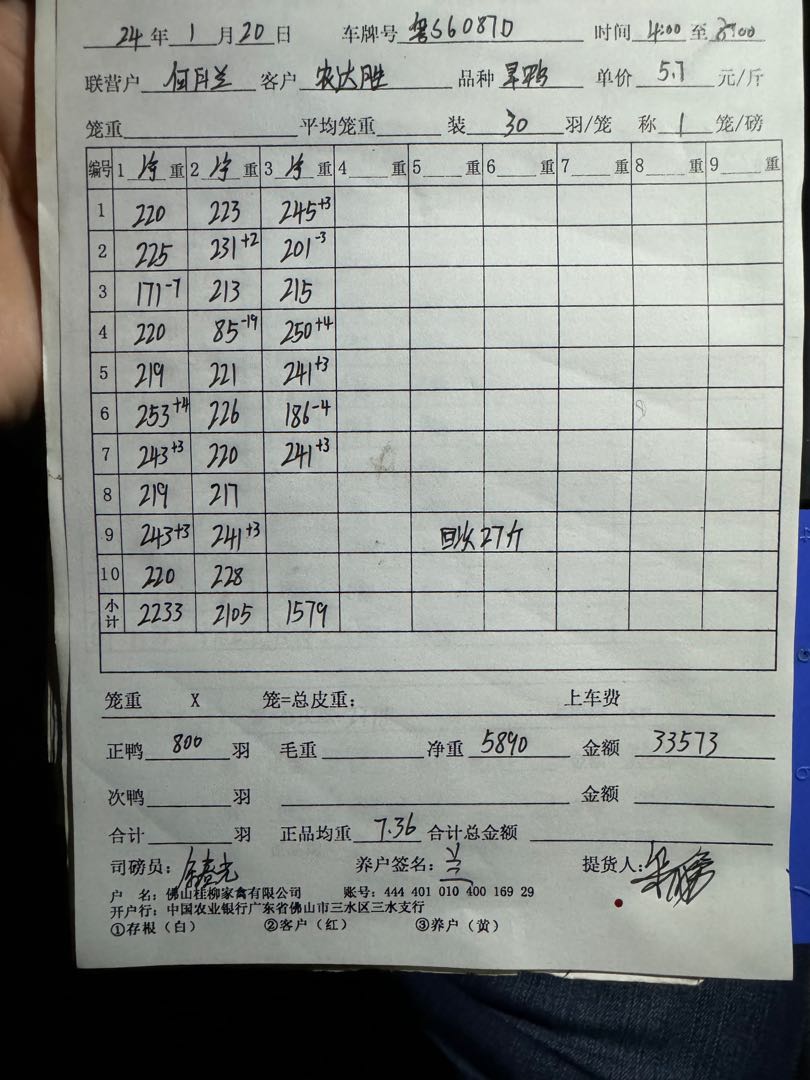 24 年 1 月 20 日 车牌号 粤S6087D 时间 4:00 至 8:00
联营户 何月兰 客户 农达胜 品种 旱鸭 单价 5.7 元/斤
笼重 平均笼重 装 30 羽/笼 称 1 笼/磅
编号 1 净 重 2 净 重 3 净 重 4 重 5 重 6 重 7 重 8 重 9 重
1 220 223 245+3
2 225 231+2 201-3
3 171-7 213 215
4 220 85-19 250+4
5 219 221 241+3
6 253+4 226 186-4
7 243+3 220 241+3
8 219 217
9 243+3 241+3 27斤
10 220 228
小计 2233 2105 1579
笼重 X 笼=总皮重： 上车费
正鸭 800 羽 毛重 净重 5890 金额 33573
次鸭 羽 金额
合计 羽 正品均重 7.36 合计总金额
司磅员： 养户签名：兰 提货人：
户 名：佛山桂柳家禽有限公司 账号：444 401 010 400 169 29
开户行：中国农业银行广东省佛山市三水区三水支行
①存根（白） ②客户（红） ③养户（黄）